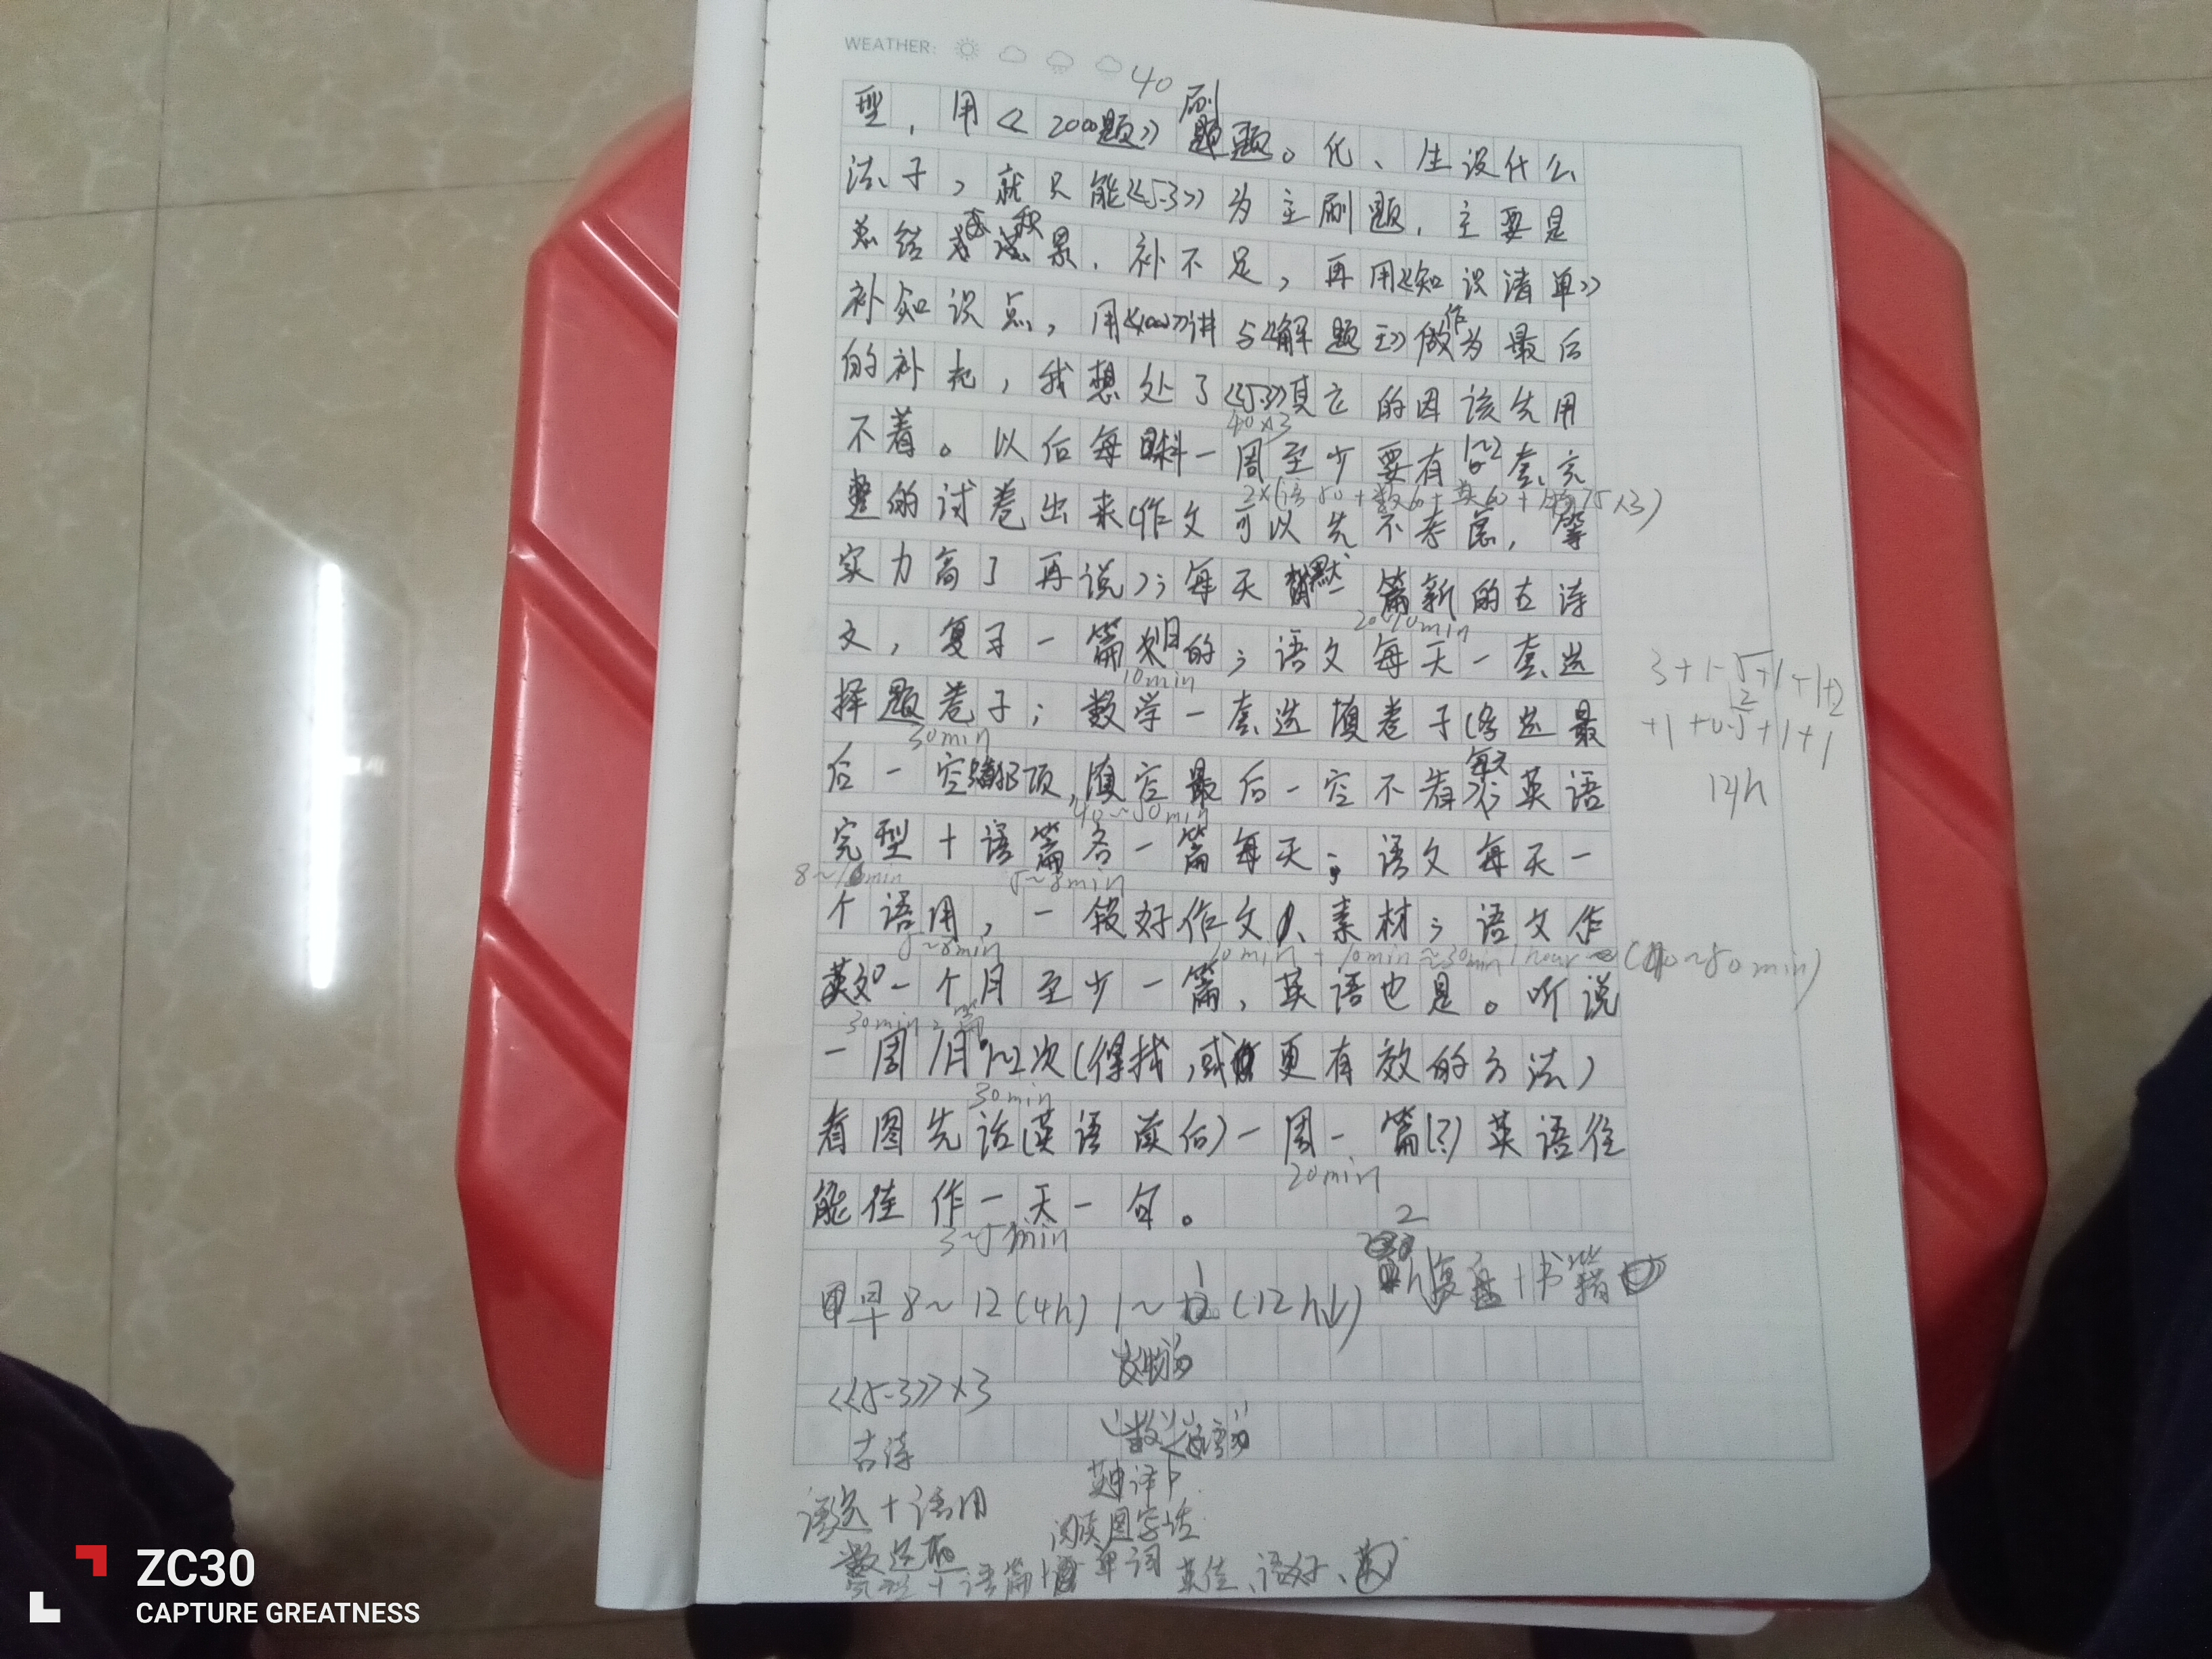 WEATHER:
40
刷
型,用《2000题》题题。化、生没什么
法子,就只能《5·3》为主刷题,主要是
总结 积累.补不足,再用《知识清单》
补知识点,用《1000》讲与《解题王》做为最后
作
的补充,我想处了《5·3》其它的因该先用
40×3
不着。以后每科一周至少要有1~2套完
2×(语50+数60+英60+物75×3)
整的试卷出来(作文可以先不考虑,等
实力高了再说);每天默 篇新的古诗
20~40min
文,复习一篇划旧的;语文每天一套选
10min
择题卷子;数学一套选填卷子(多选最
30min
后一空 顶,填空最后一空不看);每天英语
40~50min
完型+语篇各一篇每天;语文每天一
8~10min 5~8min
个语用,一段好作文、素材;语文作
5~8min 10min+10min≈30min 1 hour (40~50min)
文一个月至少一篇,英语也是。听说
30min 2篇
一周/月1~2次(得找,或 更有效的方法)
30min
看图先话(英语读后)一周一篇(?)英语往
20min
能佳作一天一句。
3~5min
3+1.5+1+1+2
+1+0.5+1+1
12h
2
早8~12(4h) 1~ (12h↓) h复盘+书籍
《5·3》×3
古诗
语选+语用
数选
完型+语篇+ 单词 英佳、语好、英